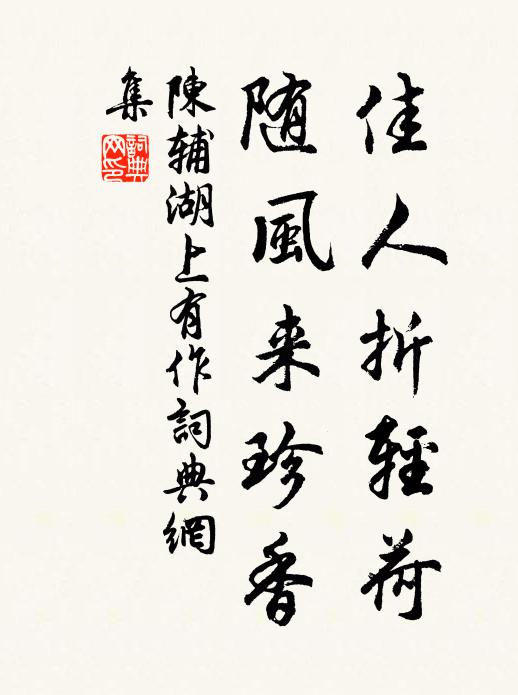 佳人折輕荷
随風来珍香
陳輔湖上有作詞典網
集
詞典网印